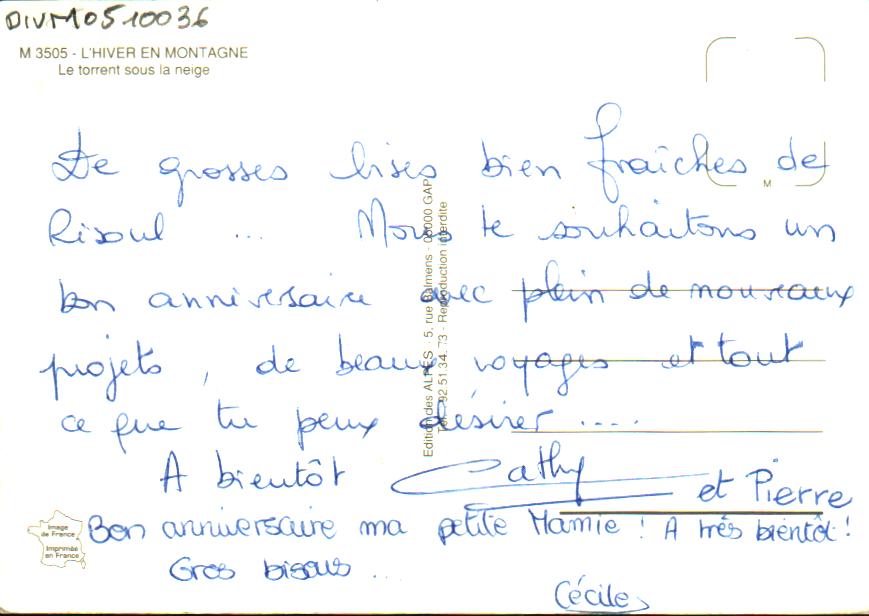 DIVM0510036
M 3505 - L'HIVER EN MONTAGNE
Le torrent sous la neige
M
De grosses bises bien fraîches de
Risoul ... Nous te souhaitons un
bon anniversaire avec plein de nouveaux
projets, de beaux voyages et tout
ce que tu peux désirer ....
A bientôt Cathy et Pierre
Bon anniversaire ma petite Mamie ! A très bientôt !
Gros bisous ...
Cécile
Edition des ALPES - 5, rue Balmens - 05000 GAP
Tél. 92.51.34.73 - Reproduction interdite
Image
de France
Imprimée
en France